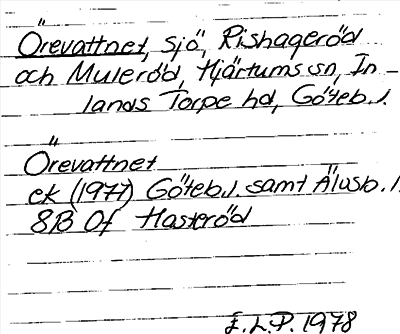 Örevattnet, sjö, Rishageröd
och Muleröd, Hjärtums sn, In
lands Torpe hd, Göteb.l.
Örevattnet
ek (1977) Göteb.l. samt Älvsb. l
8B 0f Hasteröd
E.L.P. 1978